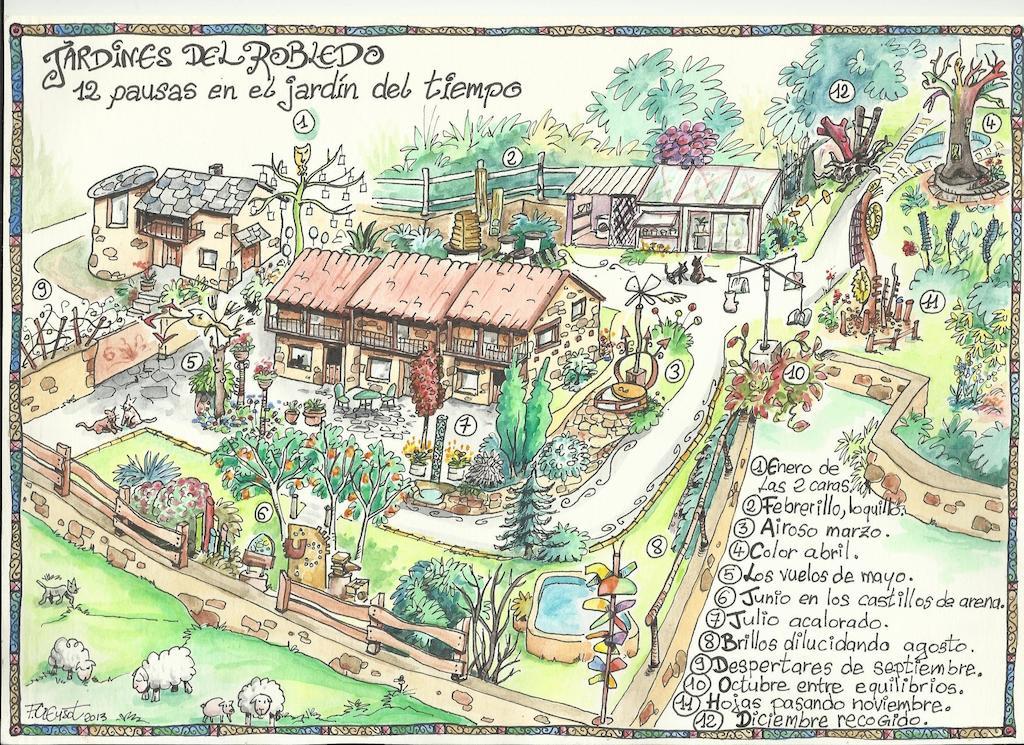 JARDINES DEL ROBLEDO
12 pausas en el jardín del tiempo
1
2
12
4
9
3
11
5
10
7
6
8
① Enero de
las 2 caras.
② Febrerillo, loquillo.
③ Airoso marzo.
④ Color abril.
⑤ Los vuelos de mayo.
⑥ Junio en los castillos de arena.
⑦ Julio acalorado.
⑧ Brillos dilucidando agosto.
⑨ Despertares de septiembre.
⑩ Octubre entre equilibrios.
⑪ Hojas pasando noviembre.
⑫ Diciembre recogido.
2013